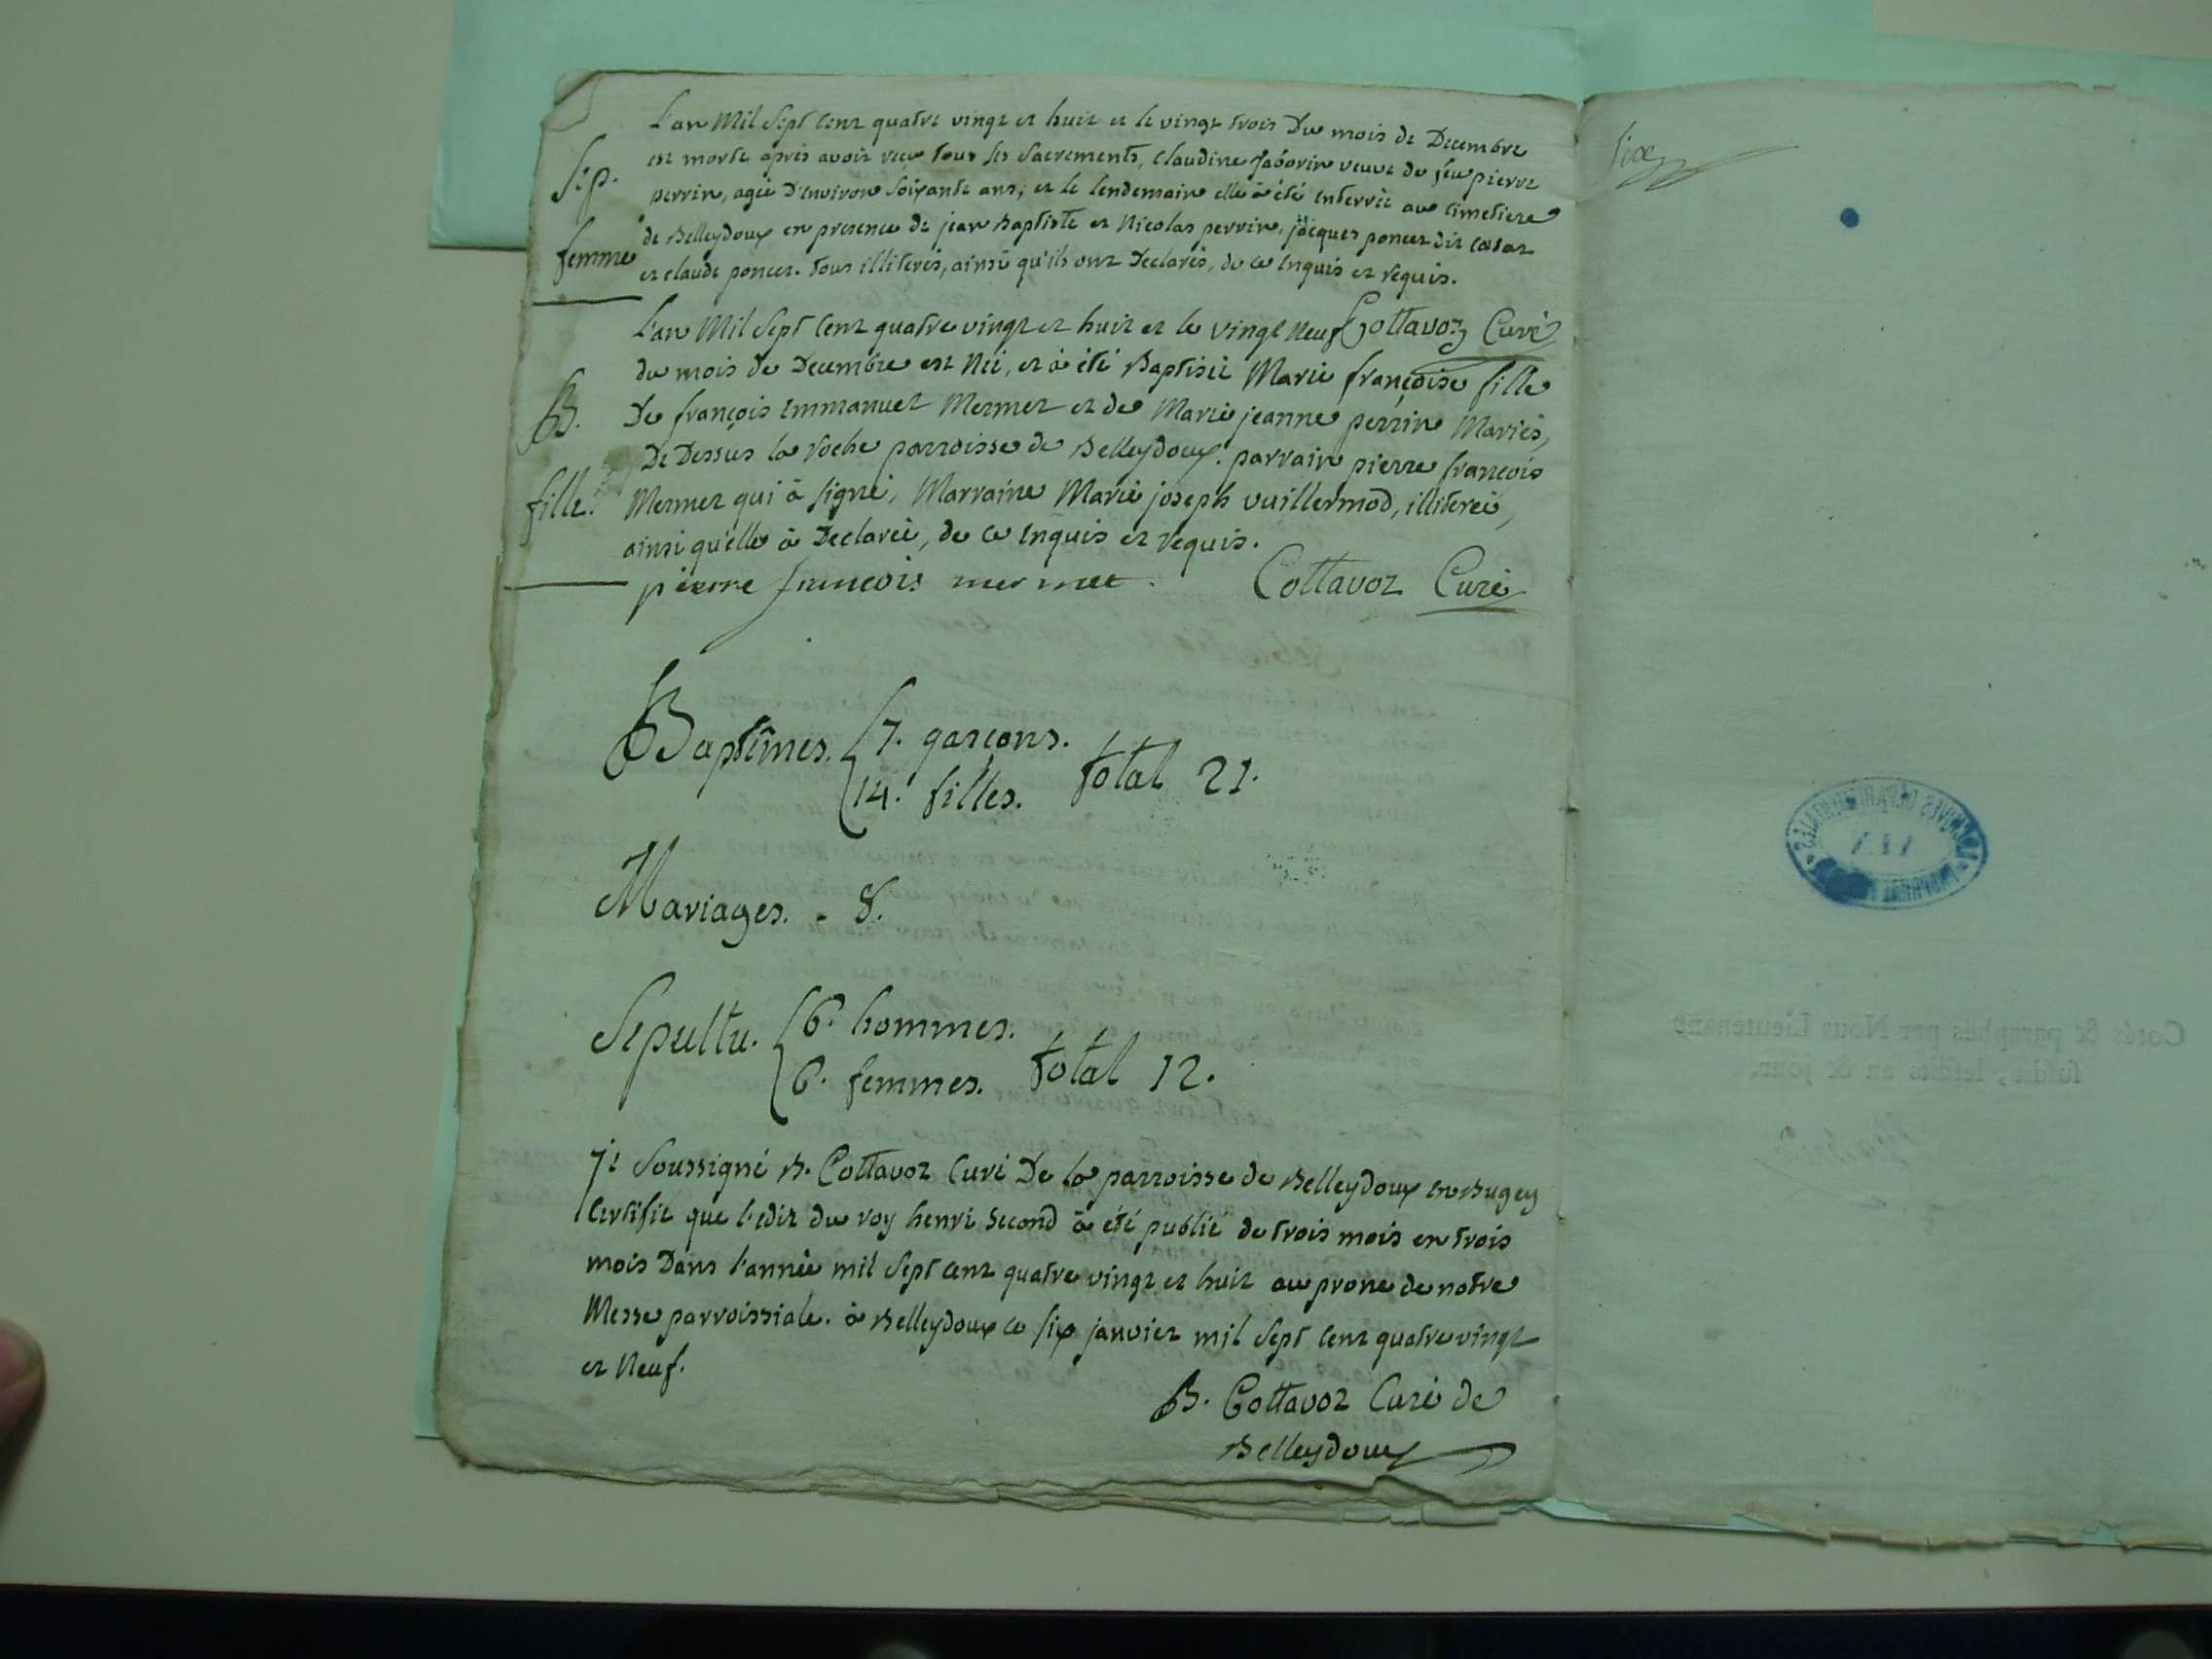 L'an Mil Sept Cent quatre vingt et huit et le vingt trois Du mois de Decembre
Sep. est morte après avoir reçu tous les Sacrements, Claudine
veuve de feu pierre
perrin, agée D'environ Soixante ans, et le lendemain elle à été Enterrée au Cimetiere
femme de Belleydoux en presence de jean Baptiste et Nicolas perrin, jâcques poncet dit
et claude poncet. tous illiterés, ainsi qu'ils ont Declarés, de ce Enquis et requis.
Cottavoz Curé
L'an Mil Sept Cent quatre vingt et huit et le vingt Neuf
du mois de Decembre est Née, et à été Baptisée Marie françoise fille
B. De françois Emmanuel Mermet et de Marie jeanne perrin Mariés,
De Dessus la roche parroisse de Belleydoux. parrain pierre françois
fille. Mermet qui à signé, Marraine Marie joseph vuillermod, illiterée,
ainsi qu'elle à Declarée, de ce Enquis et requis.
pierre francois mermet. Cottavoz Curé
Baptêmes. 7. garçons.
14. filles. total 21.
Mariages. - 8.
Sepultu. 6. hommes.
6. femmes. total 12.
je Soussigné B. Cottavoz Curé De la parroisse de Belleydoux en Bugey
Certifie que l'edit du roy henri Second à été publié de trois mois en trois
mois Dans l'année mil Sept cent quatre vingt et huit au prone de notre
Messe parroissiale. à Belleydoux ce six janvier mil Sept Cent quatre vingt
et Neuf.
B. Cottavoz Curé de
Belleydoux
six
ARCHIVES DÉPARTEMENTALES
Cotés & paraphés par Nous Lieutenant
susdit, lesdits an & jour.